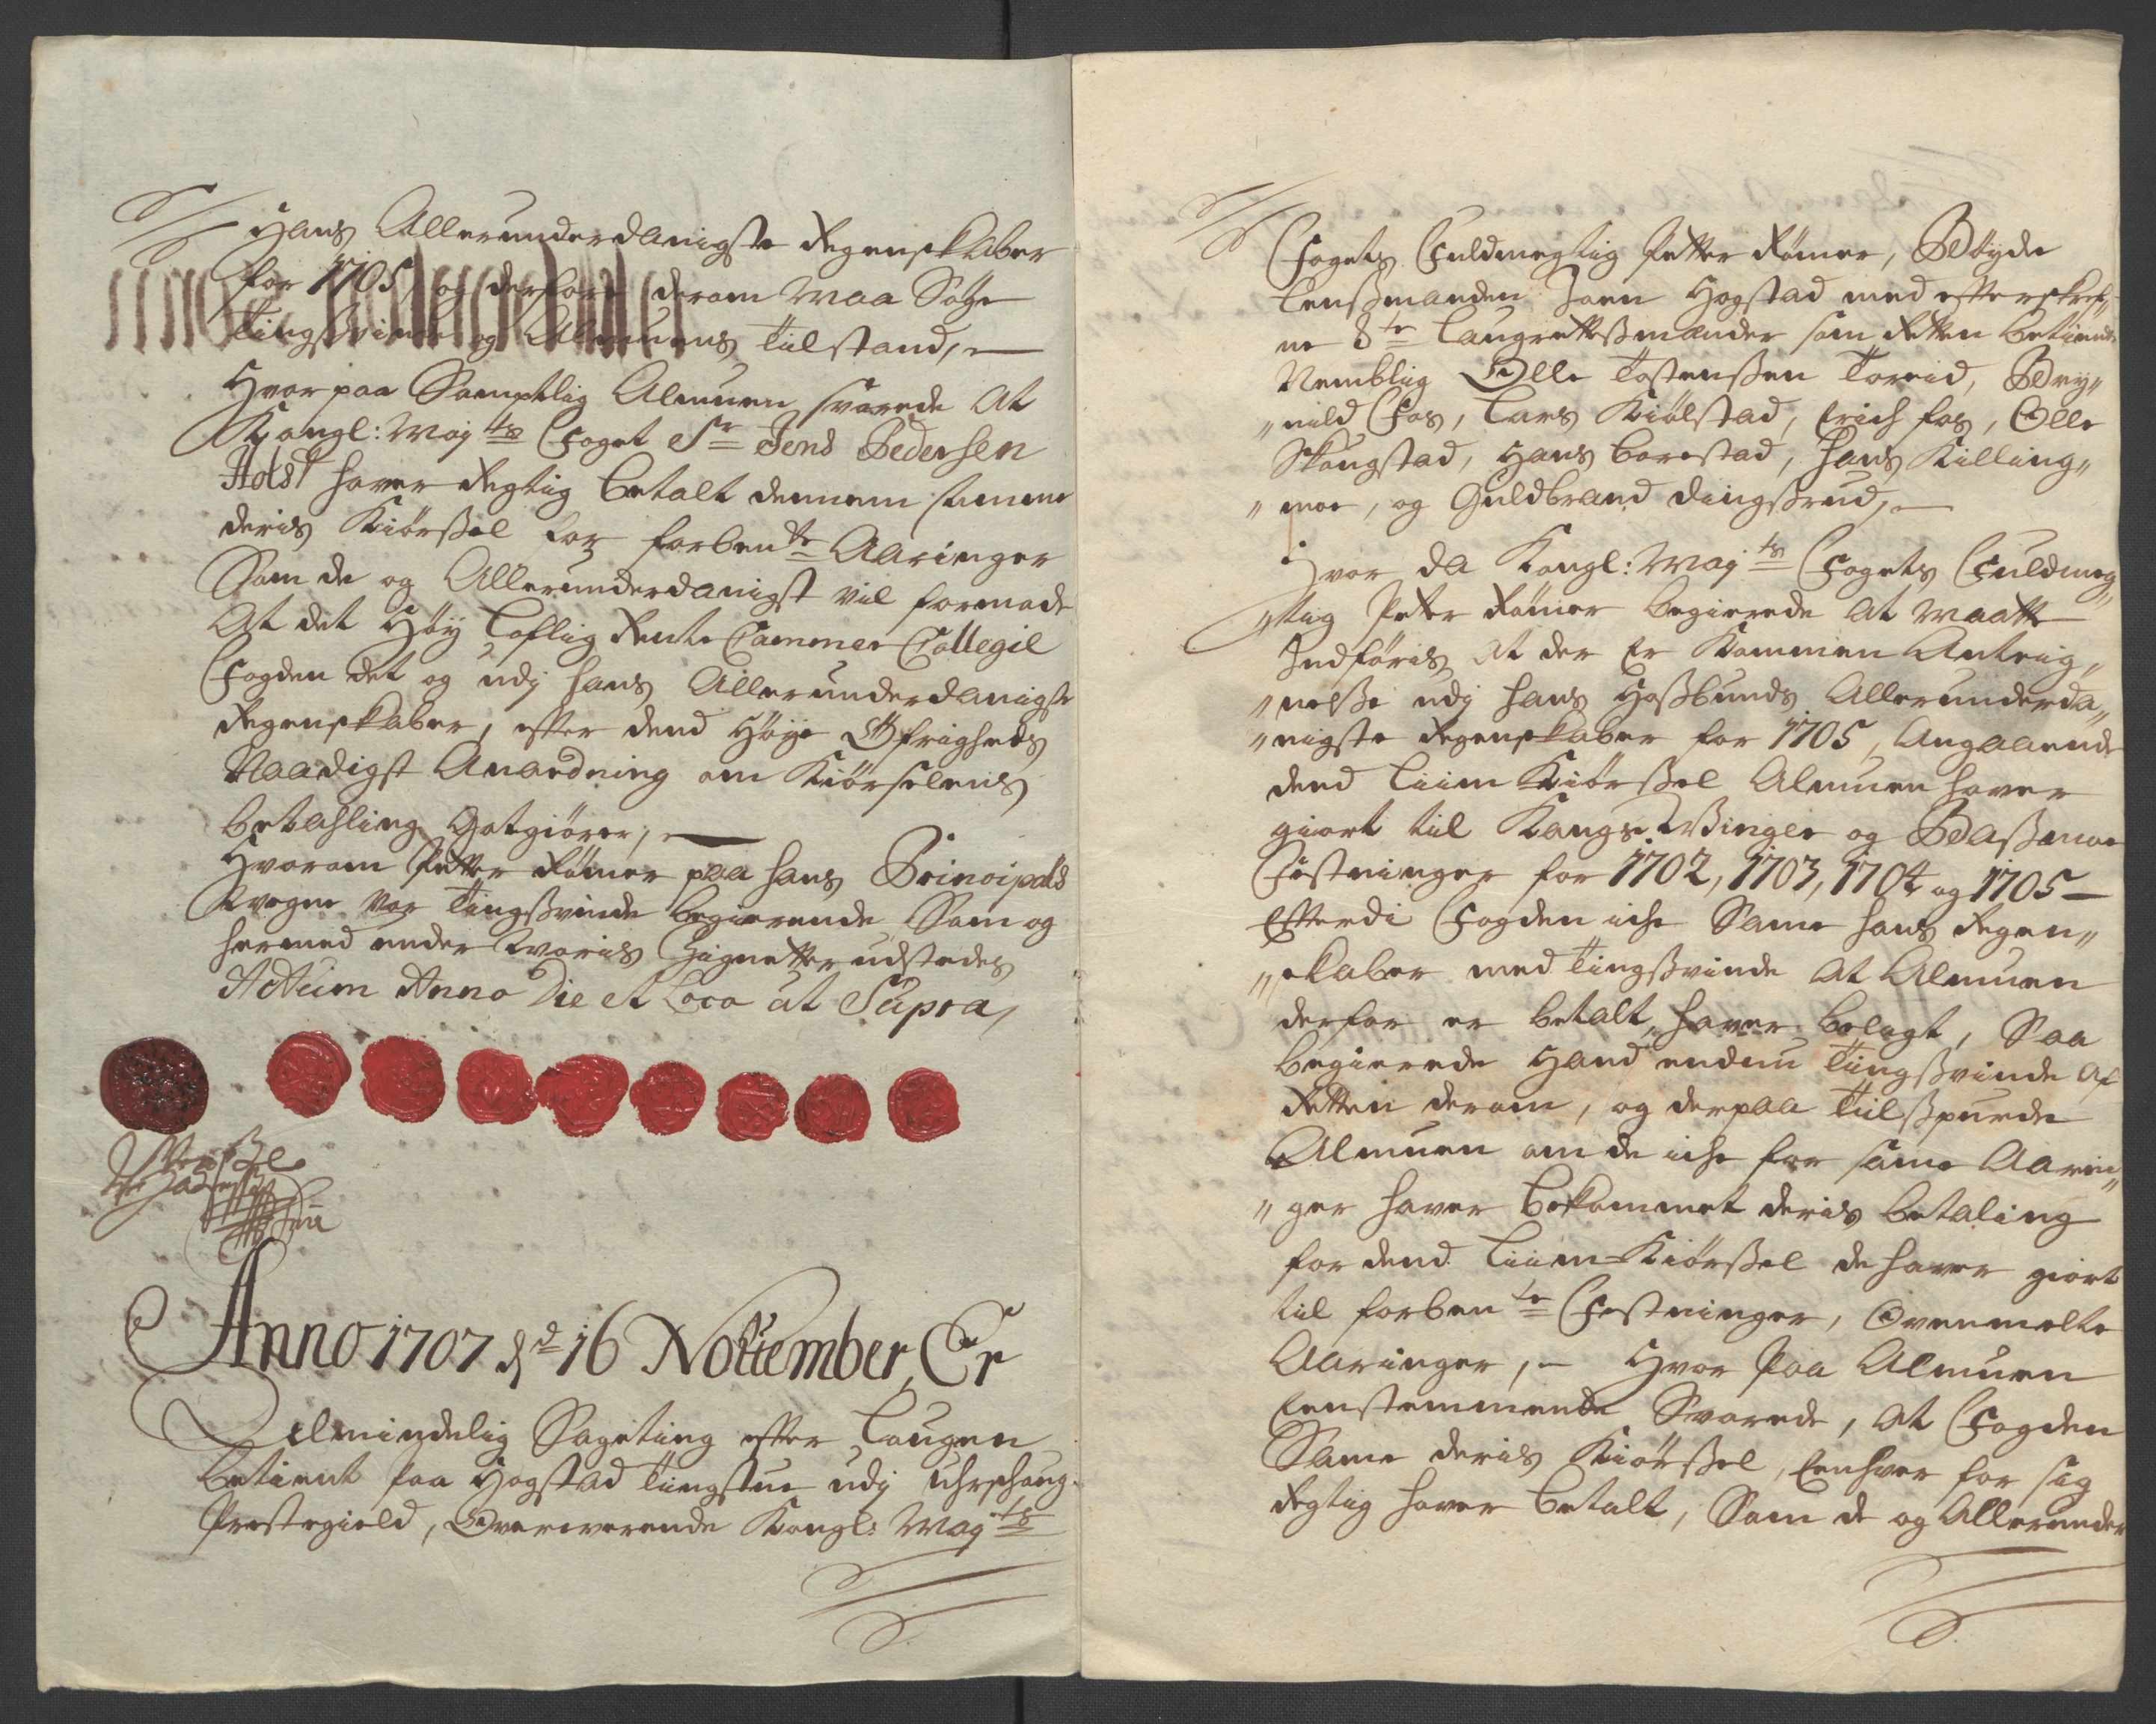 Hans Allerunderdanigste Regenskaber
for 1705, og derfore derom maa Søge
Tingsvinde og Almuens tilstand,
Hvorpaa Samptlig Almuen svarede At
Kongl: Maj ts Foget Sr Jens Pedersen
Holst hafver Rigtig betalt dennem samme
deris Kiørssel for forben te Aaringer
Som de og Allerunderdanigst vil formode
At det Høy Loflig Rente Cammer Collegie
Fogden det og udj hans Allerunderdanigste
Regenskaber, efter dend Høye Øfrigheds
Naadigst Anordning om Kiørselens
betahling Gotgiører,
Hvorom Petter Rømer paa hans Principals
Vegne Var Tingssvinde begierende Som og
hermed under Woris Zignetter udstedes
Actum Anno Die et Loco ut Supra,
Anno 1707 d 16 November, Er
Almindelig Sageting efter Laugen
betient paa Hogstad Tingstue udj Uhrschoug
Prestegield, Overværende Kongl: Maj ts
Fogets Fuldmegtig Petter Rømer, Bøyde
Lenssmanden Joen Hogstad med efterskref-
ne 8 te Laugrettessmænder som Retten betiente
Nemblig Olle Tostenssen Toreid, Bry„
„nild Fos, Lars Kiølstad, Erich fos, Olle
Skougstad, Hans Borestad, Hans Killing„
„moe, og Guldbrand Dingssrud,
Hvor da Kongl: Maj ts Fogets Fuldmeg„
„tig Peter Rømer begierede at maatte
Indføris, At der Er Kommen Anteig„
„nelsse udj hans Hossbunds Allerunderda„
„nigste Regenskaber for 1705, Angaaende
dend Liim Kiørssel Almuen hafver
giort til Kongs Winger og Bassmoe
Festninger for 1702, 1703, 1704 og 1705 —
Efterdi Fogden iche Same hans Regen„
„skaber med Tingssvinde At Almuen
derfor er betalt, hafver belagt, Saa
begierede Hand endnu Tingssvinde Af
Retten derom, og derpaa Tilsspurde
Almuen om de iche for same Aarin„
„ger hafver bekommet deris betaling
for dend Liim-Kiørssel de hafver giort
til forben te Festninger, Ovenmelte
Aaringer, – Hvor paa Almuen
Eenstemmende Svarede, At Fogden
Same deris Kiørssel, Eenhver for sig
Rigtig hafver betalt, Som de og Allerunder